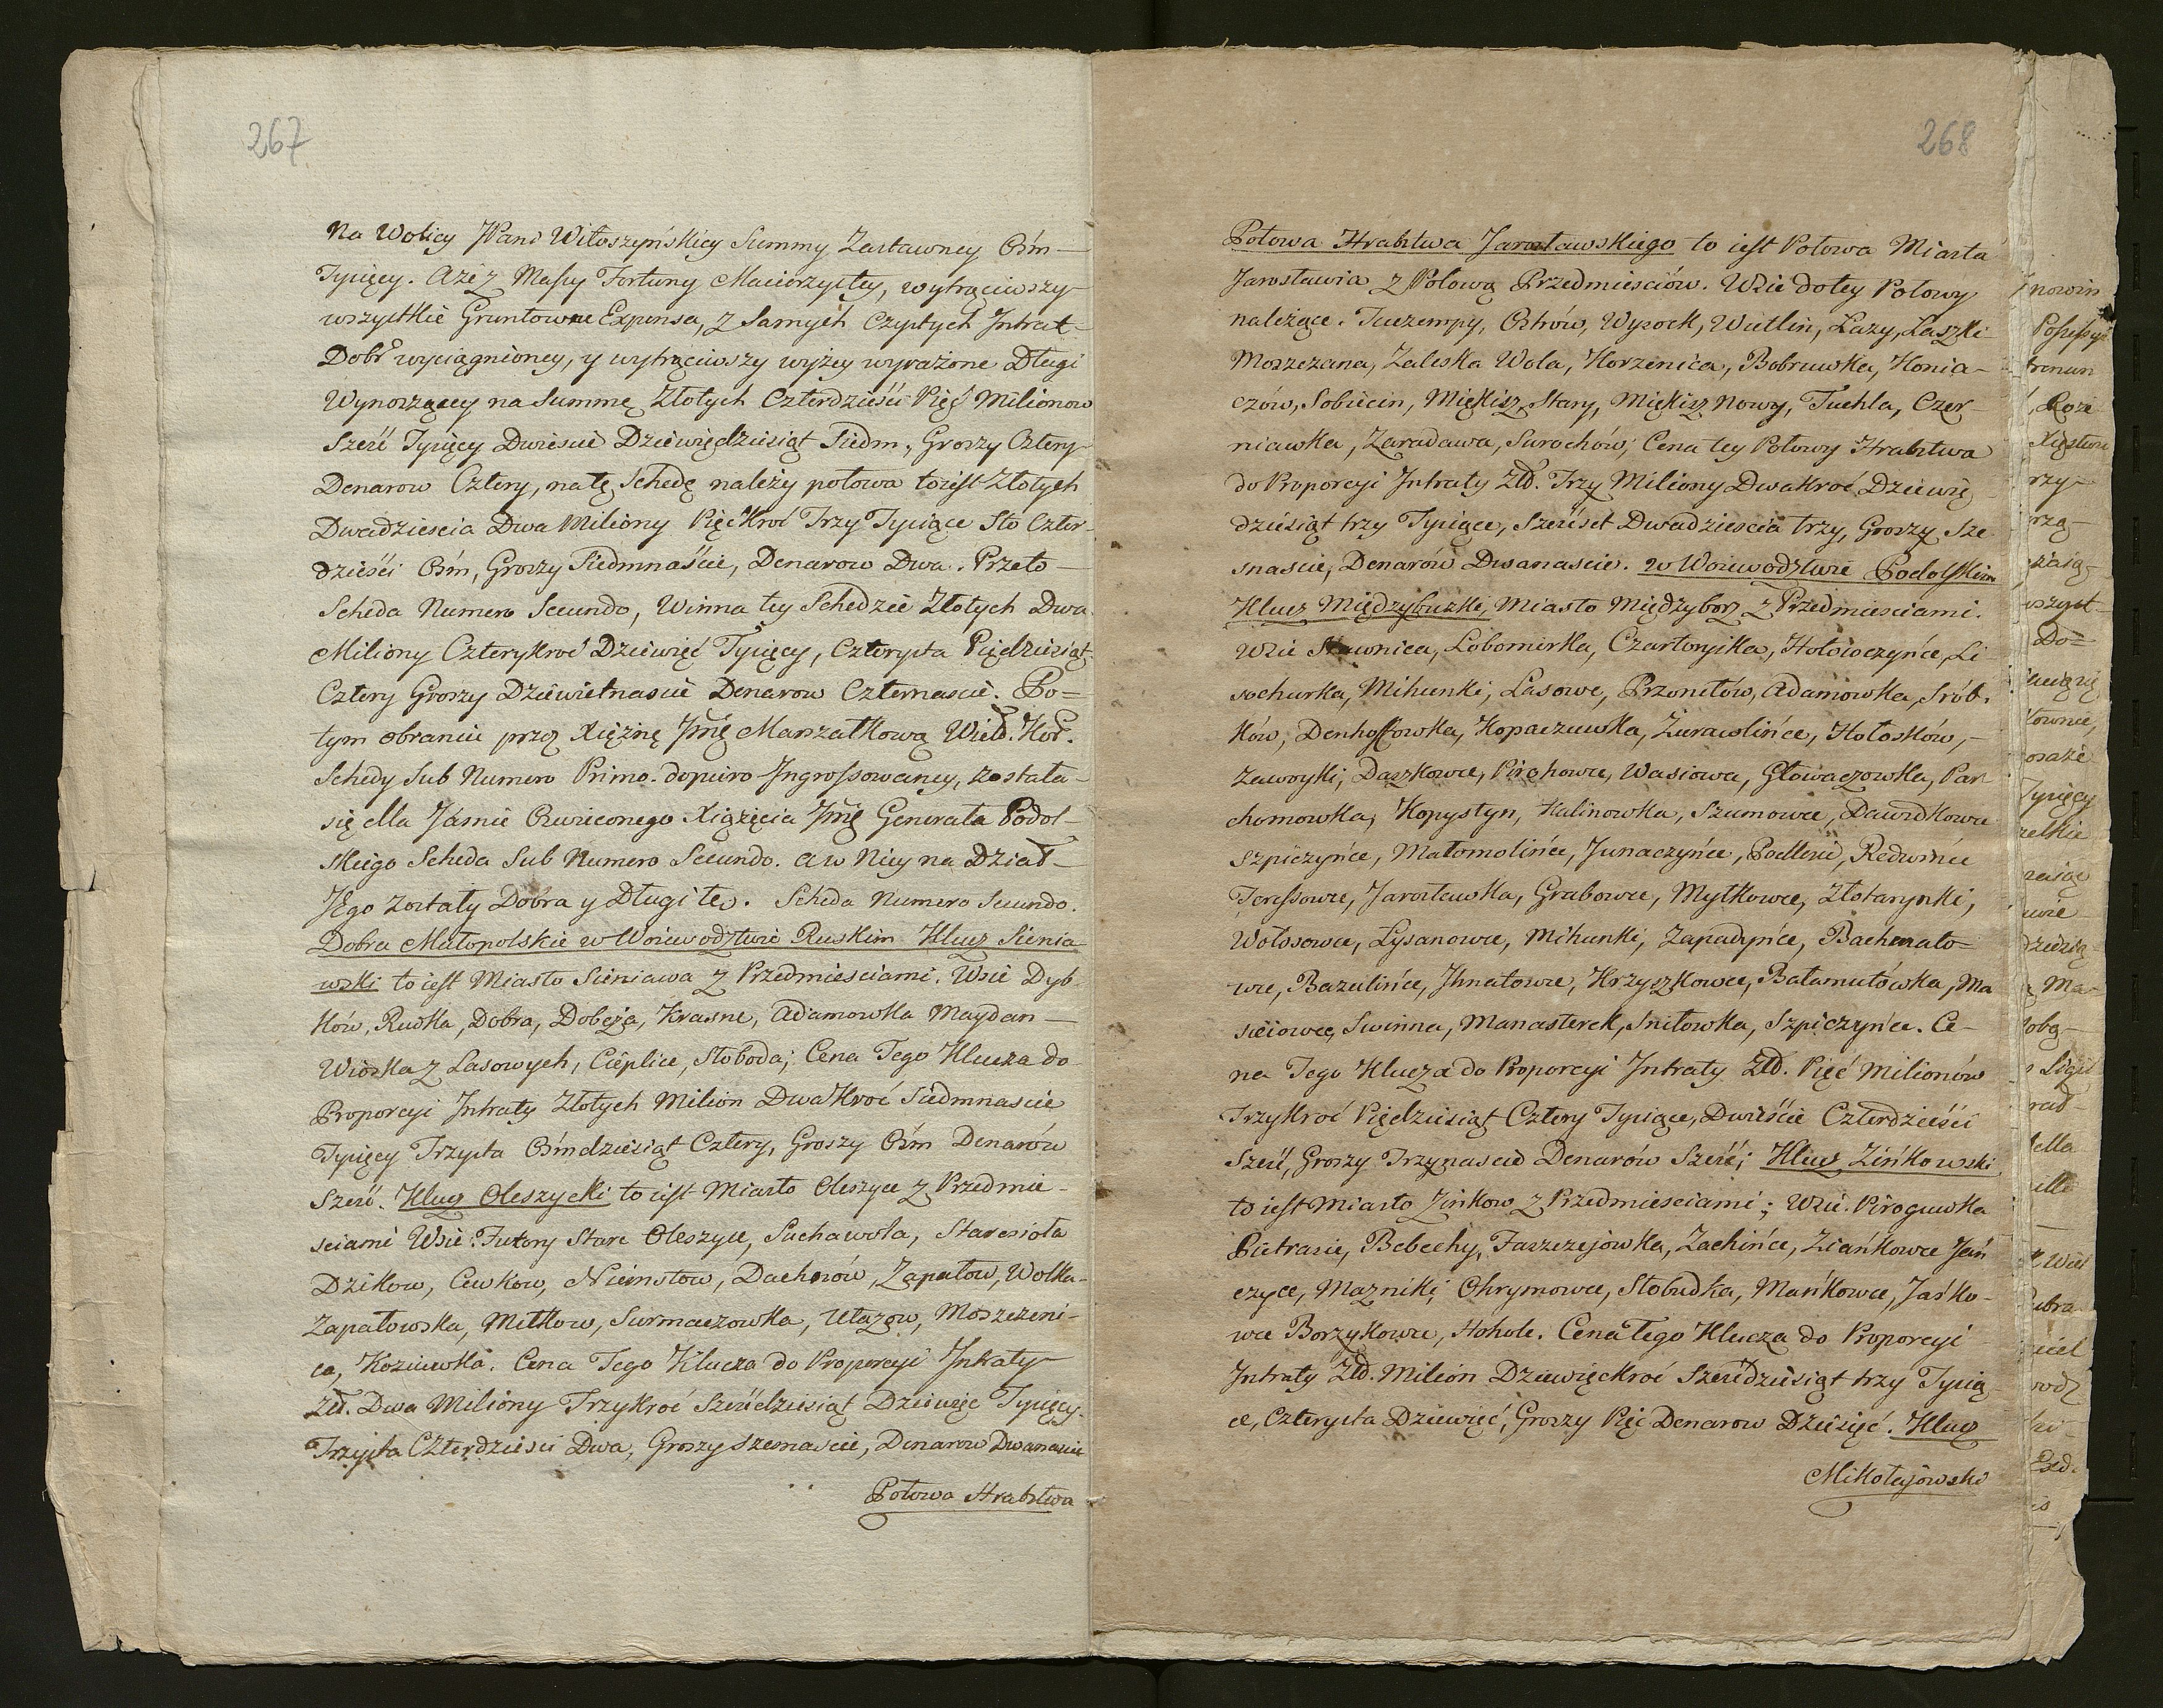 267
Na Wolicy JPani Witoszyńskiey Summy Zastawney Ośm
Tysięcy. Aże z Massy Fortuny Macierzystey, wytrąciwszy
wszystkie Gruntowne Expensa, z Samych Czystych Intrat
Dobr wyciągnioney, y wytrąciwszy wyżey wyrażone Długi
Wynoszącey na Summę Złotych Czterdzieści Pięć Milionow
Sześć Tysięcy Dwieście Dziewiędziesiąt Siedm, Groszy Cztery
Denarow Cztery, na tę Schedę należy połowa to iest Złotych
Dwadziescia Dwa Miliony Pięćkroć Trzy Tysiące Sto Czter-
dzieści Ośm, Groszy Siedmnaście, Denarow Dwa. Przeto
Scheda Numero Secundo, Winna tey Schedzie Złotych Dwa
Miliony Czterykroć Dziewięć Tysięcy, Czterysta Piędziesiąt
Cztery Groszy Dziewietnascie Denarow Czternascie. Po=
tym obraniu przez Xiężnę Jmę Marszałkową Wield. Kor.
Schedy Sub Numero Primo. dopiero Ingrossowaney, została
się dla Jaśnie Oswieconego Xiążęcia Jmę Generała Podol-
skiego Scheda Sub Numero Secundo. a w Niey na Dział
Jego zostały Dobra y Długi te. Scheda Numero Secundo.
Dobra Małopolskie w Woiewodztwie Ruskim Klucz Sienia
wski to iest Miasto Sieniawa z Przedmiesciami. Wsie Dyb
ków, Rudka, Dobra, Dobcza, Krasne, Adamowka Maydan
Wioska z Lasowych, Cieplice, Słoboda; Cena Tego Klucza do
Proporcyi Intraty Złotych Milion Dwakroć Siedmnascie
Tysięcy Trzysta Ośmdziesiąt Cztery, Groszy Ośm Denarów
Sześć. Klucz Oleszycki to iest Miasto Oleszyce z Przedmie-
sciami Wsie: Futory Stare Oleszyce, Suchawola, Staresioła
Dzikow, Cewkow, Niemstow, Dachnów, Zapałow, Wolka
Zapałowska, Miłkow, Surmaczowka, Ułazow, Moszczeni-
ca, Koziuwka. Cena Tego Klucza do Proporcyi Intraty
Złd. Dwa Miliony Trzykroć Sześćdziesiąt Dziewięć Tysięcy
Trzysta Czterdziesci Dwa, Groszy szesnascie, Denarow Dwanascie
Połowa Hrabstwa
268
Połowa Hrabstwa Jarosławskiego to iest Połowa Miasta
Jarosławia z Połową Przedmiesciów. Wsie do tey Połowy
należące. Tuczempy, Ostrów, Wysock, Wietlin, Łazy, Laszki
Moszczana, Zaleska Wola, Korzenica, Bobruwka, Konia-
czów, Sobiecin, Miękisz Stary, Miękisz Nowy, Tuchla, Czer-
niawka, Zaradawa, Surochów, Cena tey Połowy Hrabstwa
do Proporcyi Intraty Złd. Trzy Miliony Dwakroć Dziewię
dziesiąt trzy Tysiące, Sześćset Dwadziescia trzy, Groszy Sze
snascie, Denarów Dwanascie. w Woiewodztwie Podolskim
Klucz Międzybuzki, Miasto Międzyborz z Przedmiesciami.
Wsie Stawnica, Lobomirka, Czartoryika, Hołowczyńce, Li
sochurka, Mihunki, Lasowe, Przonitów, Adamowka, Srób-
ków, Denhoffowka, Kopaczuwka, Żurawlińce, Hołosków,
Zawoyki, Daszkowce, Pirohowce, Wasiowa, Głowaczowka, Par
chomowka, Kopystyn, Kalinowka, Szumowce, Dawidkowce
Szpiczyńce, Małomolińce, Junaczyńce, Podlesie, Redwińce
Teressowce, Jarosławka, Grabowce, Mytkowce, Złotarynki,
Wołosowce, Łysanowce, Mihunki, Zapadyńce, Bachmato=
wce, Bazulińce, Ihnatowce, Krzyszkowce, Bałamutówka, Ma
sciowce, Swinna, Manasterek, Snitowka, Szpiczyńce. Ce-
na Tego Klucza do Proporcyi Intraty Złd. Pięć Milionów
Trzykroć Pięćdziesiąt Cztery Tysiące, Dwieście Czterdzieści
Sześć, Groszy Trzynascie Denarów Sześć; Klucz Zińkowski
to iest Miasto Zinkow z Przedmiesciami; Wsie. Piroguwka
Pietrasie, Bebechy, Faszczejówka, Zachińce, Ziańkowce Jań
czyce, Mazniki, Ohrymowce, Słobudka, Mańkowce, Jaśko-
wce Borzykowce, Hohole. Cena Tego Klucza do Proporcyi
Intraty Złd. Milion Dziewięckroć Sześćdziesiąt trzy Tysią
ce, Czterysta Dziewięć, Groszy Pięć Denarow Dziesięć. Klucz
Mikołajowski